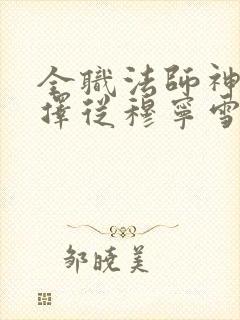 全職法師神
擇從穆寧雪
鄒曉美